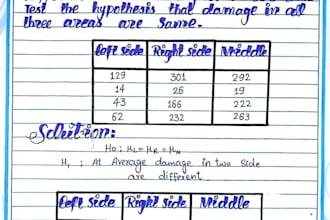 Test the hypothesis that damage in all
three areas are same.
Left side Right side Middle
129 301 292
14 26 19
43 166 222
62 232 263
Solution:
H0 ; μL = μR = μM
H1 ; At Average damage in two side
are different
Left side Right side Middle